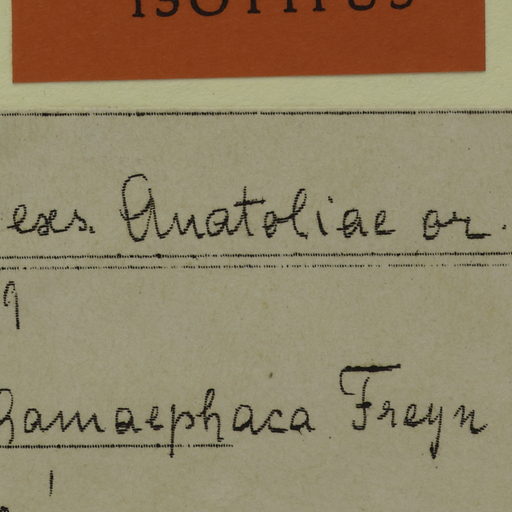 ISOTYPUS
exs. Anatoliae or.
9
hamaephaca Freyn